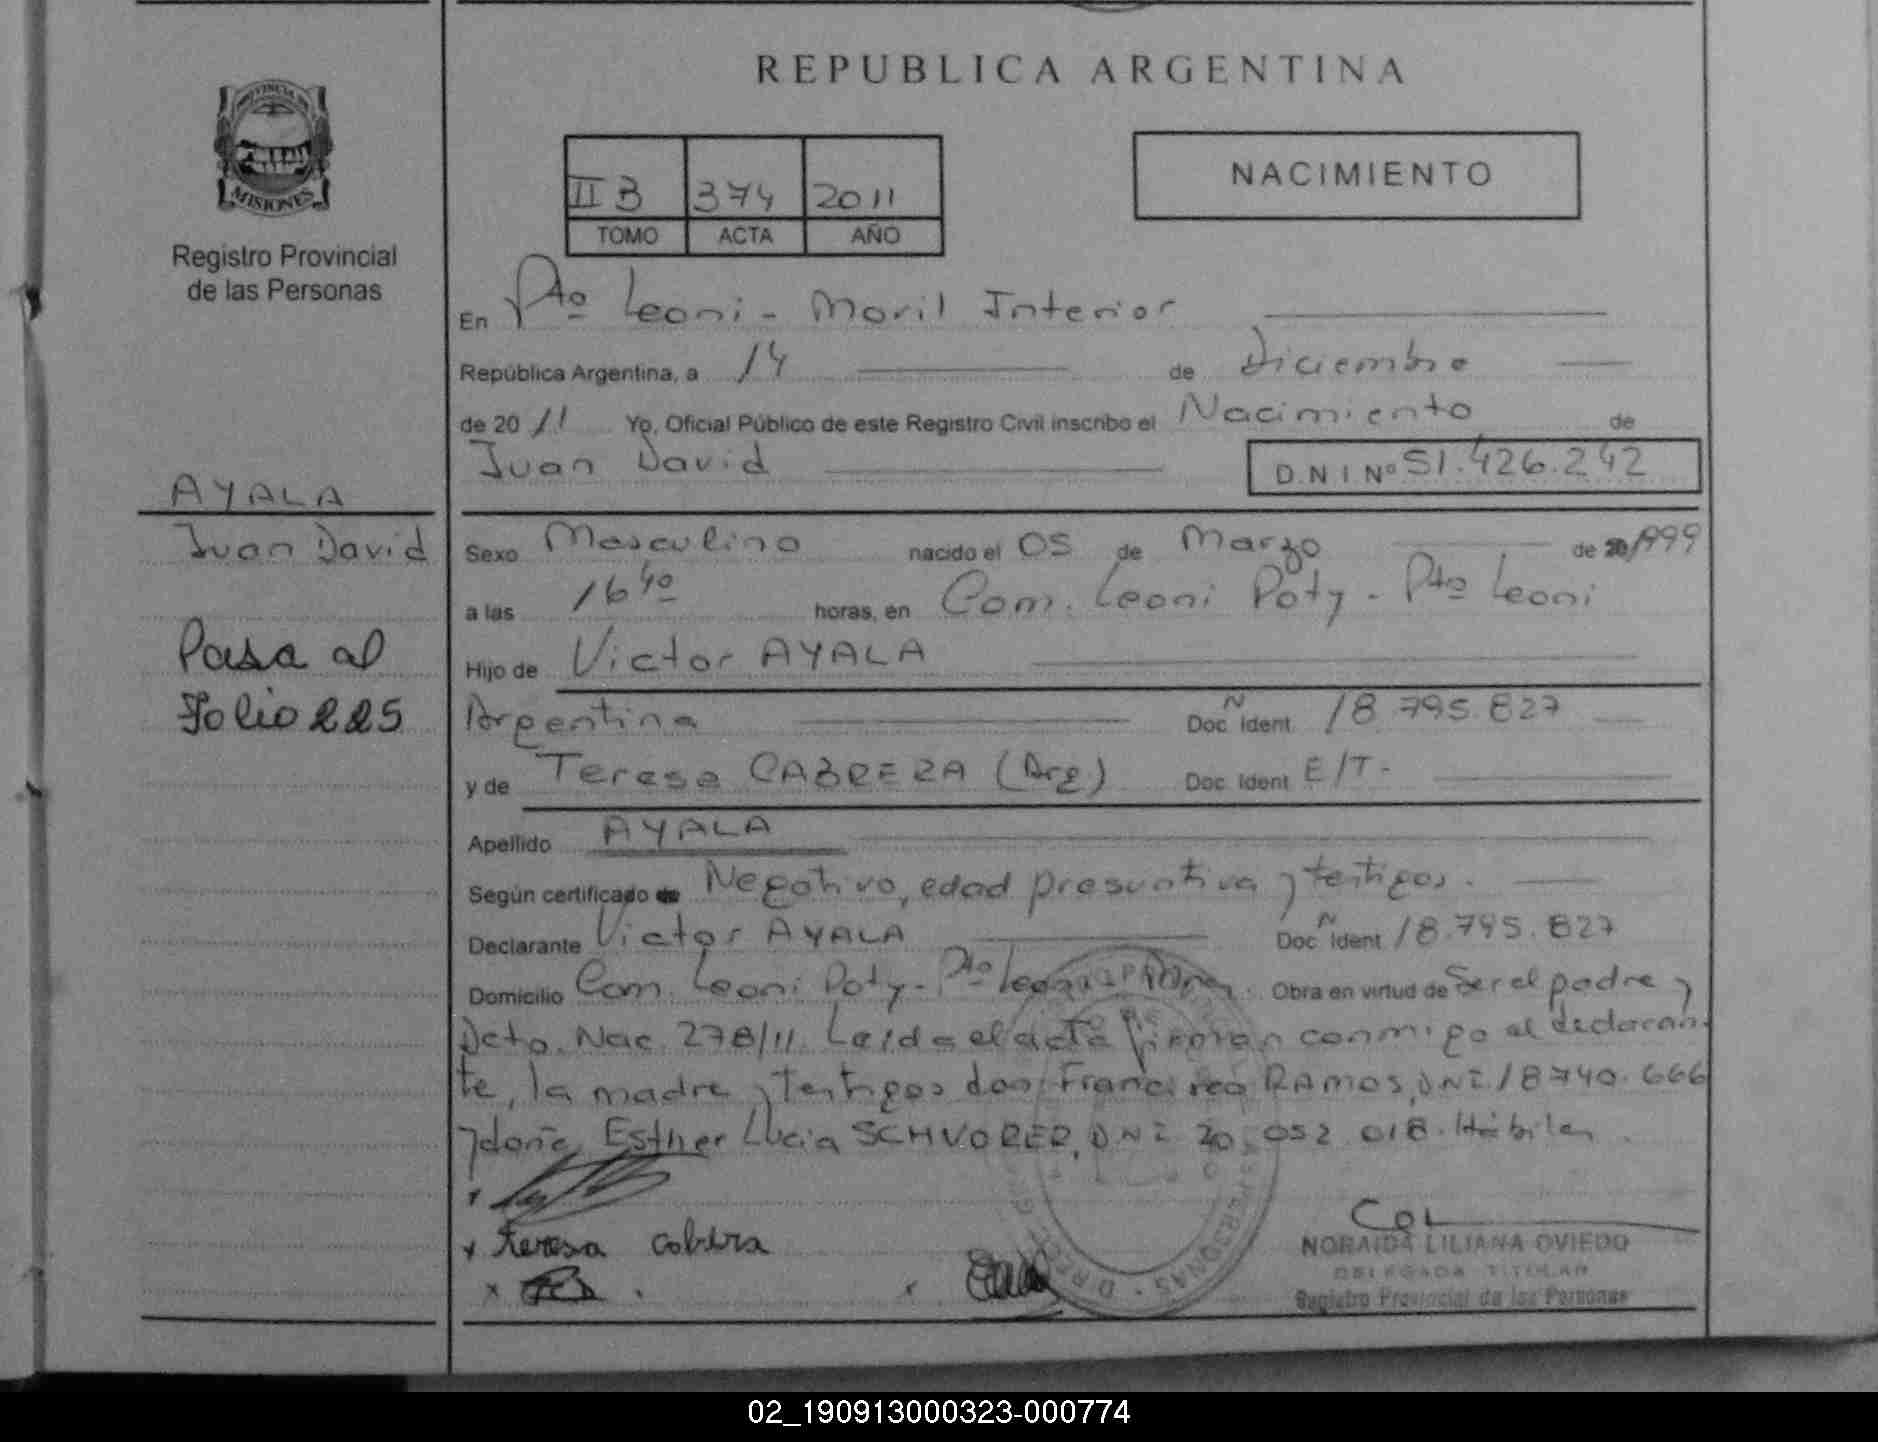 REPUBLICA ARGENTINA
PROVINCIA DE
MISIONES
Registro Provincial
de las Personas
II B 374 2011
TOMO ACTA AÑO
NACIMIENTO
En Pto Leoni - Moril Interior
República Argentina, a 14 de Diciembre
de 2011 Yo, Oficial Público de este Registro Civil inscribo el Nacimiento de
Juan David D.N.I Nº 51.426.242
AYALA
Juan David
Pasa al
Folio 225
Sexo Masculino nacido el 05 de Marzo de 1999
a las 16 40 horas, en Com. Leoni Poty - Pto Leoni
Hijo de Victor AYALA
Argentina Doc Ident N 18.795.827
y de Teresa CABRERA (Arg) Doc Ident E/T.
Apellido AYALA
Según certificado de Negativo, edad presuntiva y testigos.
Declarante Victor AYALA Doc Ident N 18.795.827
Domicilio Com. Leoni Poty - Pto Leoni Obra en virtud de Ser el padre y
Dcto. Nac. 278/11. Leida el acta firman conmigo el declaran-
te, la madre y Testigos don Francisco RAMOS, DNI 18740.666
y doña Esther Lucia SCHVORER, DNI 20.052.018. Hábiles.
x
x teresa cabrera
x
x
NORAIDA LILIANA OVIEDO
DELEGADA TITULAR
Registro Provincial de las Personas
02_190913000323-000774